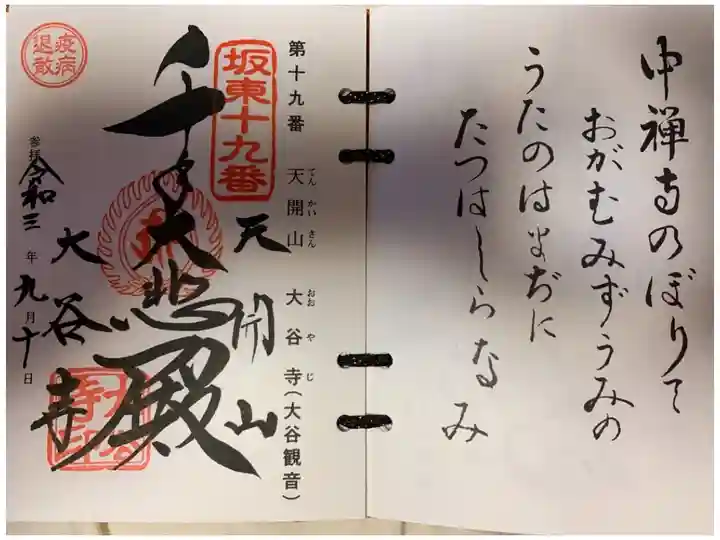 中禅寺のぼりて
おがむみずうみの
うたのはまぢに
たつはしらなみ
第十九番 天開山 大谷寺(大谷観音)
てん かい さん おお や じ
坂東十九番
天開山
千手大悲殿
大谷寺
大谷寺印
疫病退散
参拝 令和三年九月十日